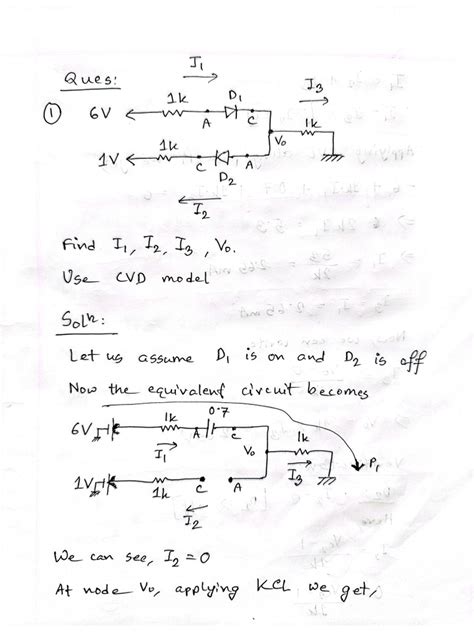 Ques:
I₁
I₃
① 6V 1k D₁ A C
V₀ 1k
1V 1k C A
D₂
I₂
Find I₁, I₂, I₃, V₀.
Use CVD model
Solⁿ:
Let us assume D₁ is on and D₂ is off
Now the equivalent circuit becomes
6V 1k A 0.7 C
I₁ V₀ 1k P₁
I₃
1V 1k C A
I₂
We can see, I₂ = 0
At node V₀, applying KCL we get,